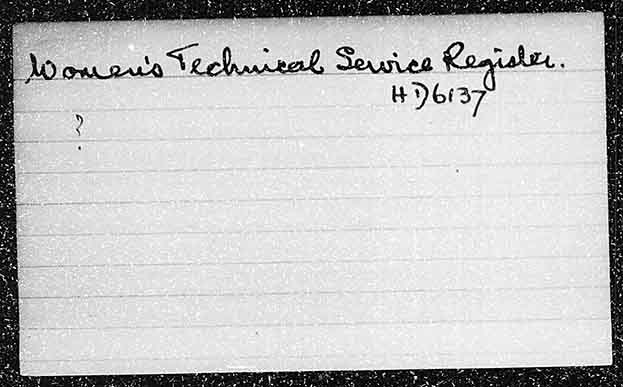 Women's Technical Service Register.
HD6137
?